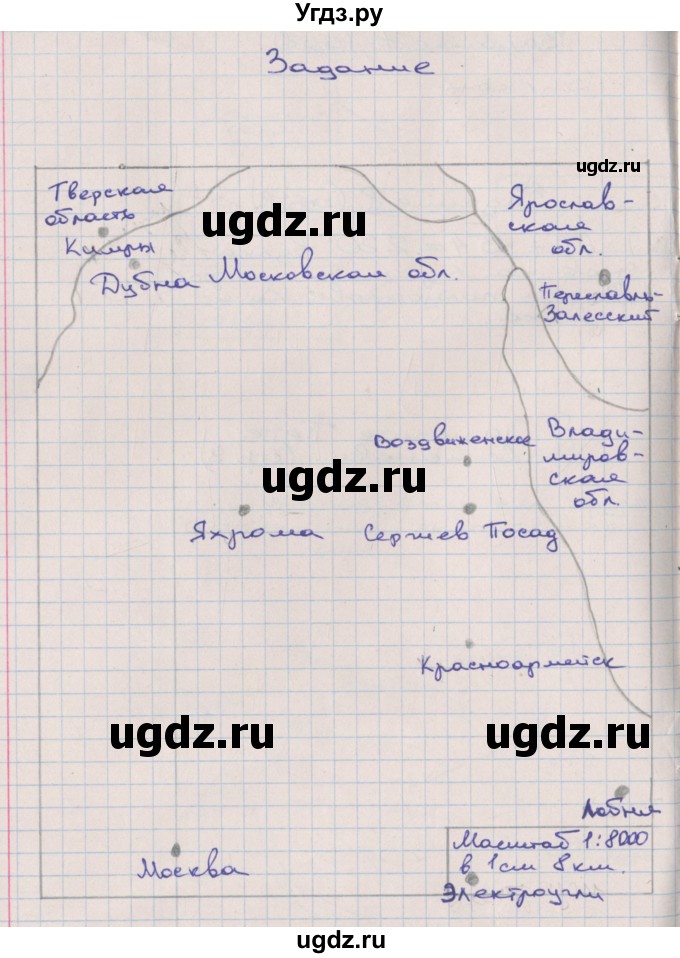 Угдз.ру
Задание
ugdz.ru
Тверская
область
Кимры
Дубна
ugdz.ru
Московская обл.
Ярослав-
ская
обл.
Переславль-
Залесский
Воздвиженское
Влади-
мировс-
ская
обл.
ugdz.ru
Яхрома
Сергиев Посад
Красноармейск
ugdz.ru
ugdz.ru
Лобня
Масштаб 1:8000
в 1см 8 км.
Москва
Электроугли
ugdz.ru